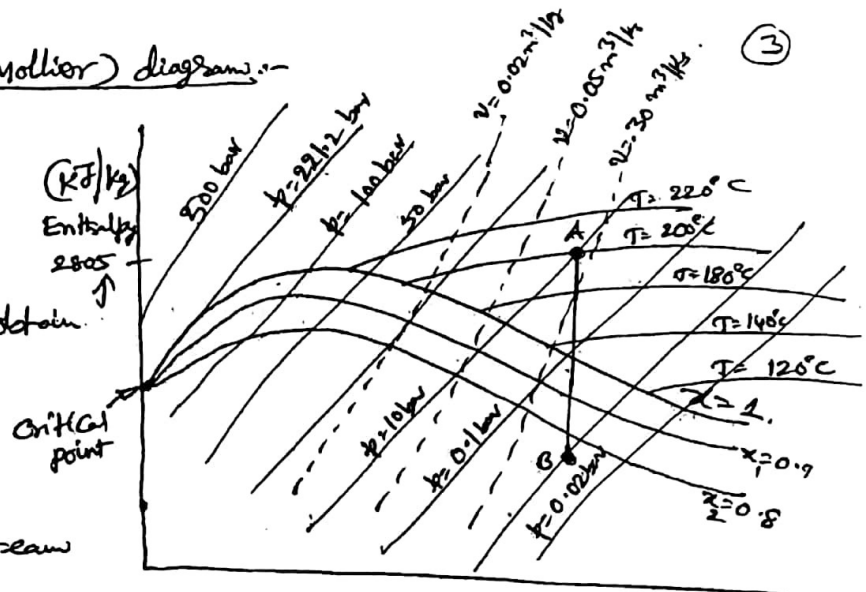 Mollier) diagram:-
3
(KJ/Kg)
Enthalpy
2805
obtain
Critical
point
500 bar
p=221.2 bar
p= 100 bar
50 bar
v=0.02m³/kg
v=0.05m³/kg
v=.30 m³/kg.
T= 220°C
T= 200°C
T=180°C
T=140°C
T= 120°C
A
B
p=10bar
p=0.1bar
p=0.02bar
x=1.
x₁=0.9
x₂=0.8